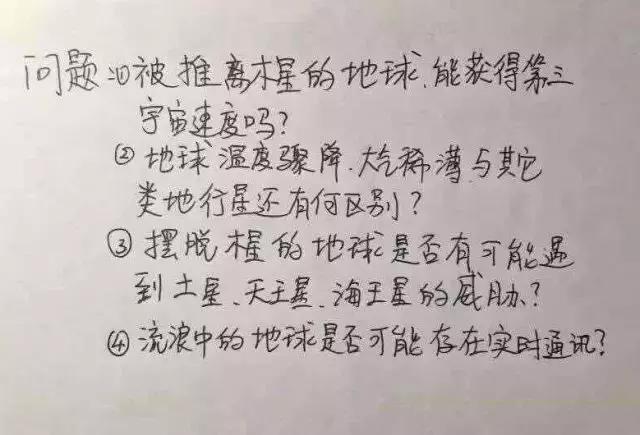 问题①被推离木星的地球,能获得第三
宇宙速度吗?
②地球温度骤降、大气稀薄与其它
类地行星还有何区别?
③摆脱木星的地球是否有可能遇
到土星、天王星、海王星的威胁?
④流浪中的地球是否可能存在实时通讯?